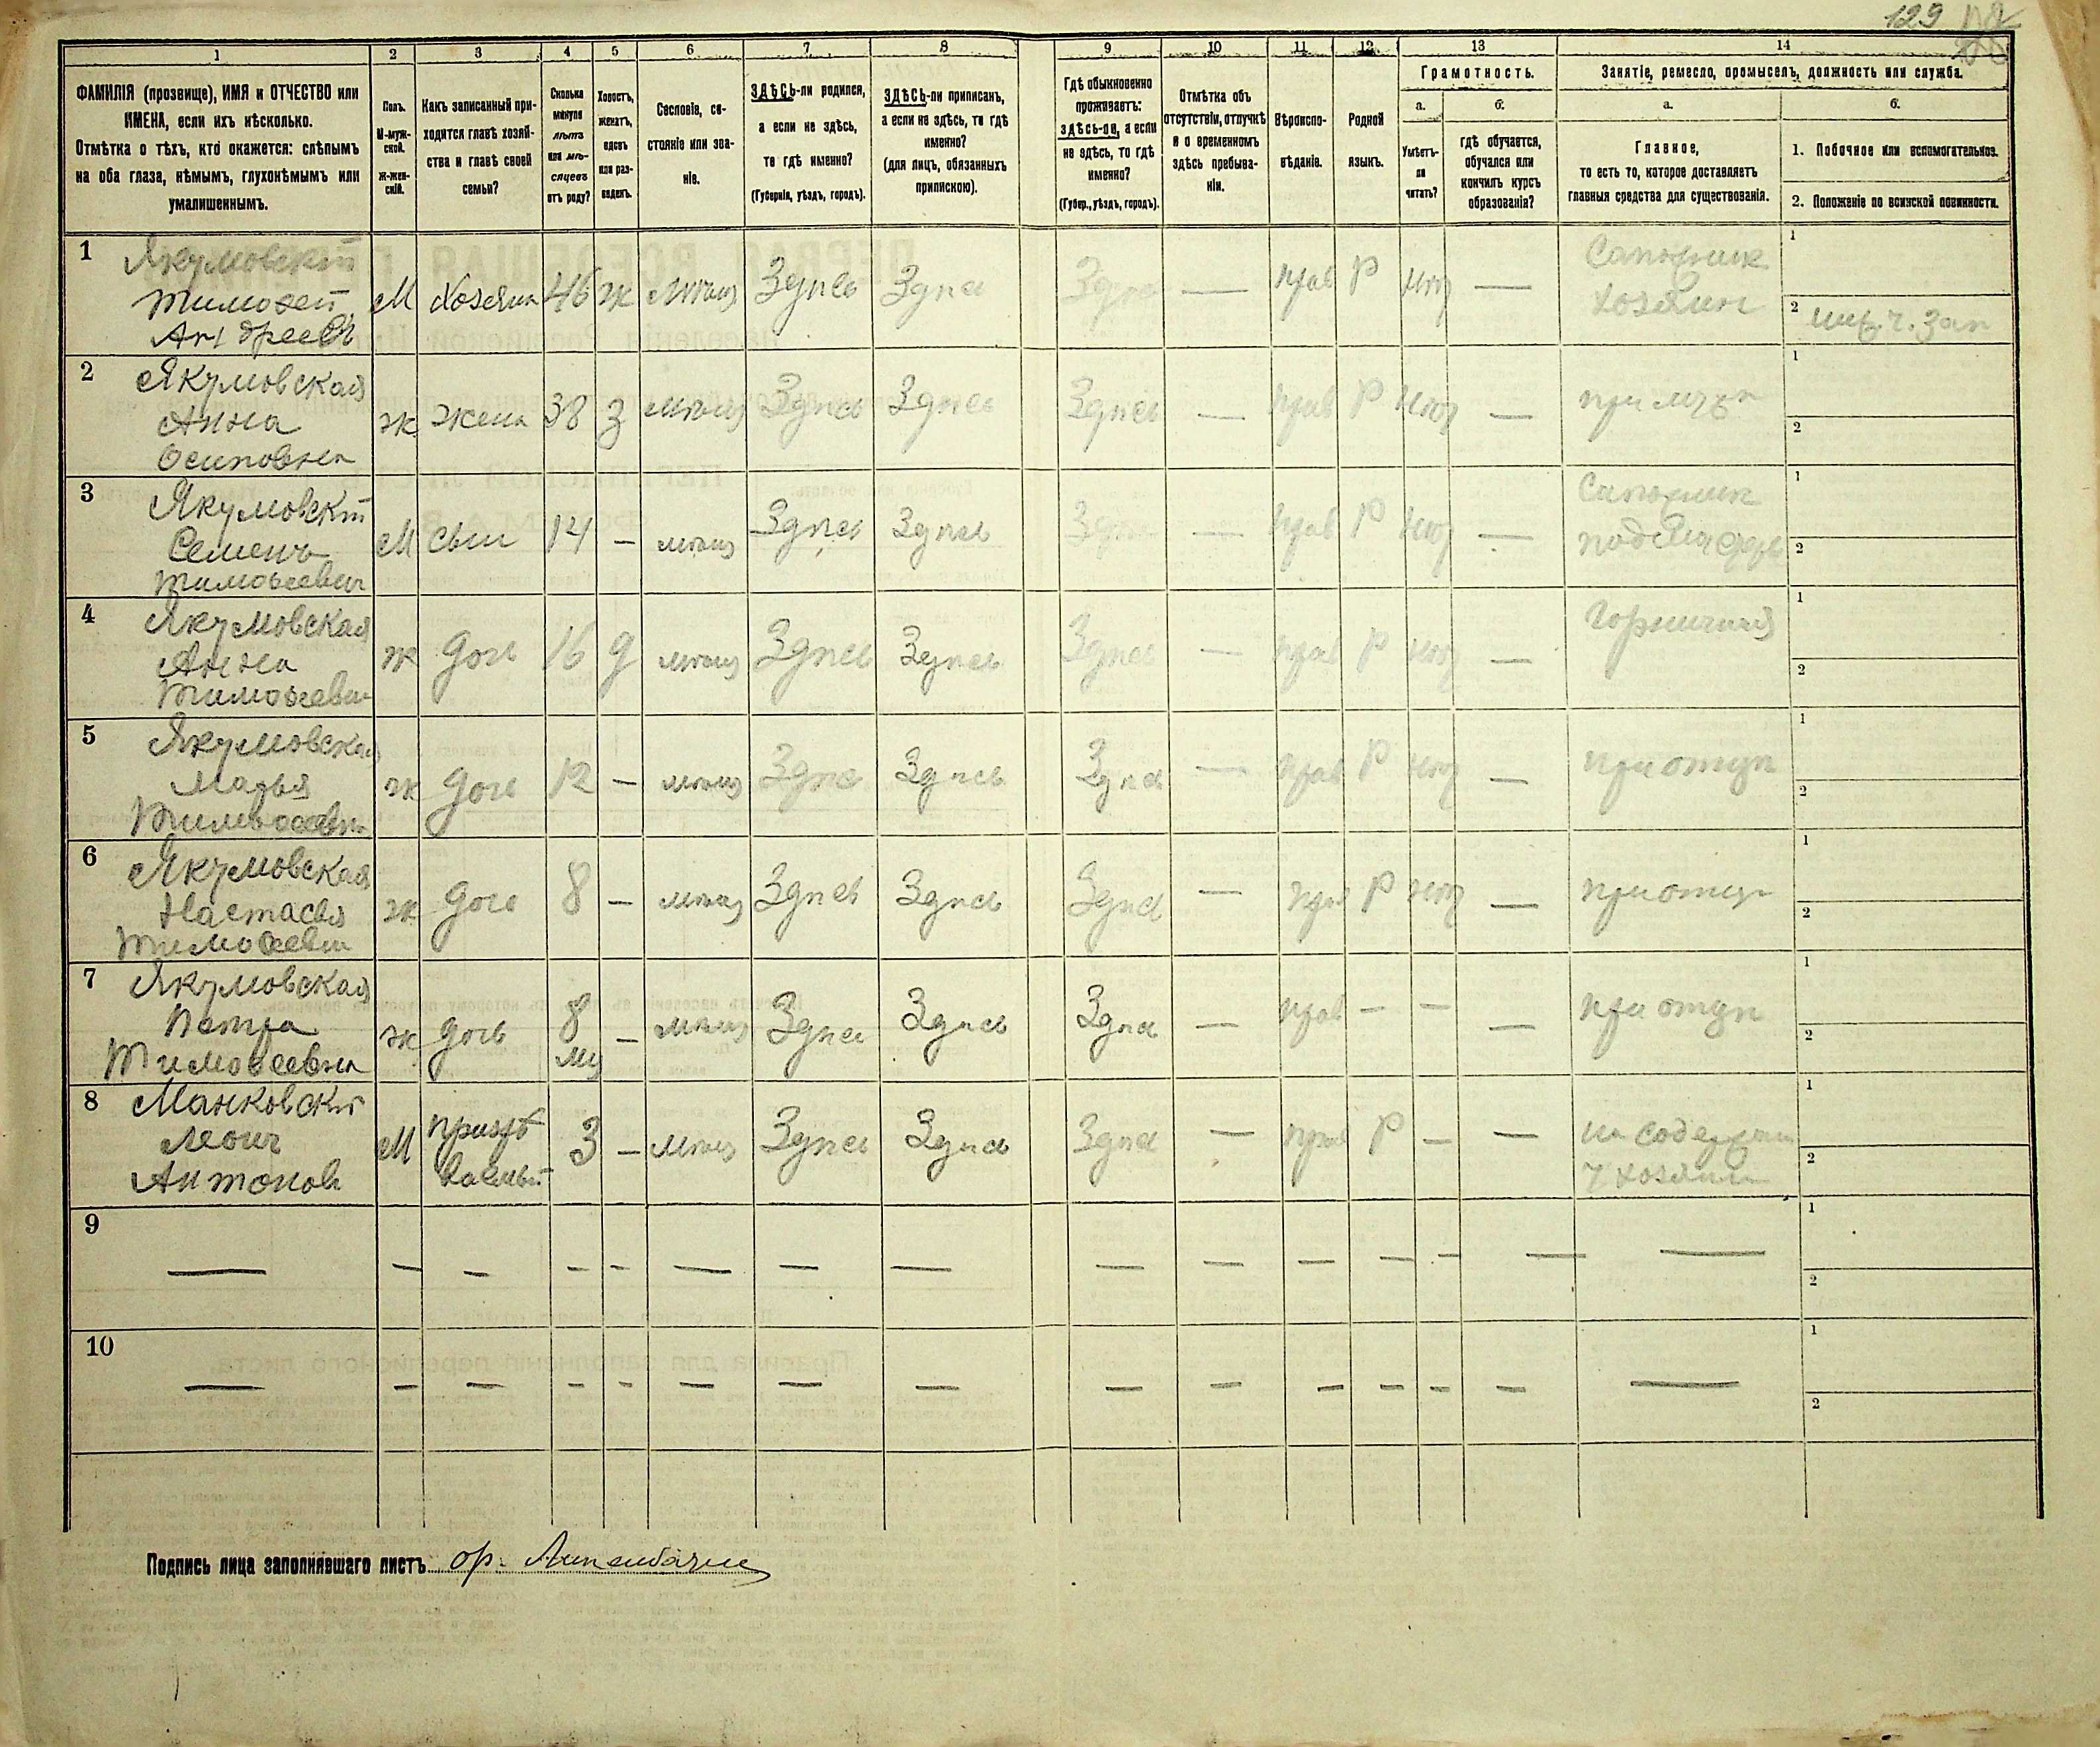 129
1 2 3 4 5 6 7 8 9 10 11 12 13 14
ФАМИЛІЯ (прозвище), ИМЯ и ОТЧЕСТВО или ИМЕНА, если ихъ нѣсколько.
Отмѣтка о тѣхъ, кто окажется: слѣпымъ на оба глаза, нѣмымъ, глухонѣмымъ или умалишеннымъ.
Полъ.
М-муж-
ской.
Ж-жен-
скій.
Какъ записанный при-
ходится главѣ хозяй-
ства и главѣ своей
семьи?
Сколько
минуло
лѣтъ
или мѣ-
сяцевъ
отъ роду?
Холостъ,
женатъ,
вдовъ
или раз-
веденъ.
Сословіе, со-
стояніе или зва-
ніе.
ЗДѢСЬ-ли родился,
а если не здѣсь,
то гдѣ именно?
(Губернія, уѣздъ, городъ).
ЗДѢСЬ-ли приписанъ,
а если не здѣсь, то гдѣ
именно?
(для лицъ, обязанныхъ
припискою).
Гдѣ обыкновенно
проживаетъ:
ЗДѢСЬ-ли, а если
не здѣсь, то гдѣ
именно?
(Губер., уѣздъ, городъ).
Отмѣтка объ
отсутствіи, отлучкѣ
и о временномъ
здѣсь пребыва-
ніи.
Вѣроиспо-
вѣданіе.
Родной
языкъ.
Грамотность.
а. б.
Умѣетъ-
ли
читать?
гдѣ обучается,
обучался или
кончилъ курсъ
образованія?
Занятіе, ремесло, промыселъ, должность или служба.
а. б.
Главное,
то есть то, которое доставляетъ
главныя средства для существованія.
1. Побочное или вспомогательное.
2. Положеніе по воинской повинности.
1 Якумовскій
Тимофей
Андреевъ
М Хозяинъ 46 ж мѣщ Здѣсь Здѣсь Здѣсь — прав Р нѣт —
Сапожник
хозяин
1
2
2 Якумовская
Анна
Осиповна
ж жена 38 З мѣщ Здѣсь Здѣсь Здѣсь — прав Р нѣт — при мужѣ
1
2
3 Якумовскій
Семенъ
Тимофеевич
М сын 14 — мѣщ Здѣсь Здѣсь Здѣсь — прав Р нѣт —
Сапожник
1
2
4 Якумовская
Анна
Тимофеевна
ж дочь 16 д мѣщ Здѣсь Здѣсь Здѣсь — прав Р нѣт — горничная
1
2
5 Якумовская
Марья
Тимофеевна
ж дочь 12 — мѣщ Здѣсь Здѣсь Здѣсь — прав Р нѣт — при отцѣ
1
2
6 Якумовская
Настасья
Тимофеевна
ж дочь 8 — мѣщ Здѣсь Здѣсь Здѣсь — прав Р нѣт — при отцѣ
1
2
7 Якумовская
Петра
Тимофеевна
ж дочь 8 мц — мѣщ Здѣсь Здѣсь Здѣсь — прав — — — при отцѣ
1
2
8 Манковскій
Леон
Антонов
М 3 — мѣщ Здѣсь Здѣсь Здѣсь — прав Р — —
на содержан
у хозяина
1
2
9 — — — — — — — — — — — — — — —
1
2
10 — — — — — — — — — — — — — — —
1
2
Подпись лица заполнявшаго листъ